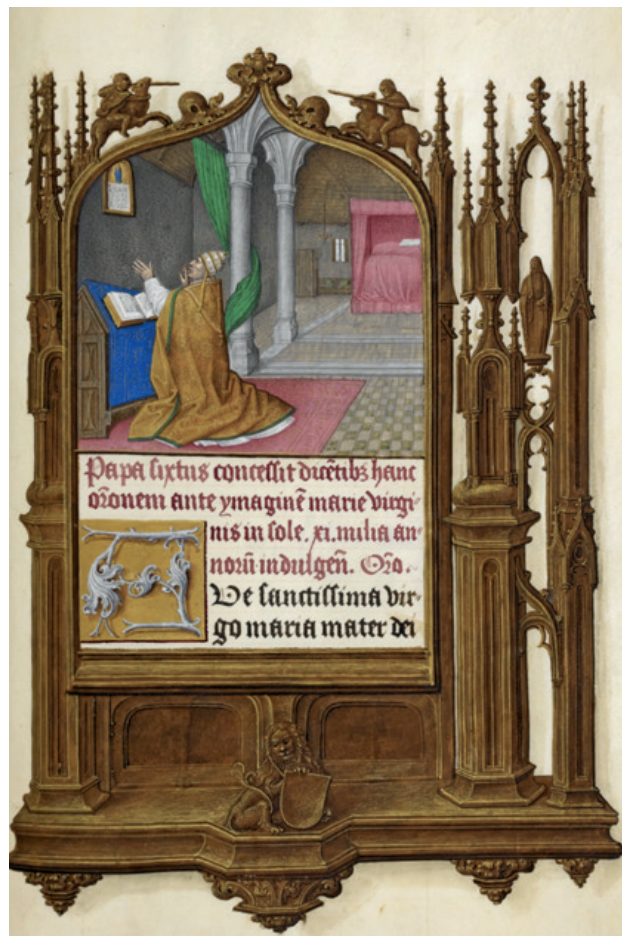 Papa sixtus concessit dicētibꝫ hanc
oȓonem ante ymaginē marie virgi⸗
nis in sole. xi. milia an⸗
norū indulgeñ. Oȓo.
Ave sanctissima vir⸗
go maria mater dei